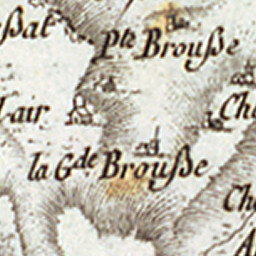 ßat
Pte Brouße
Lair
Ch
la Gde Brouße
Ch